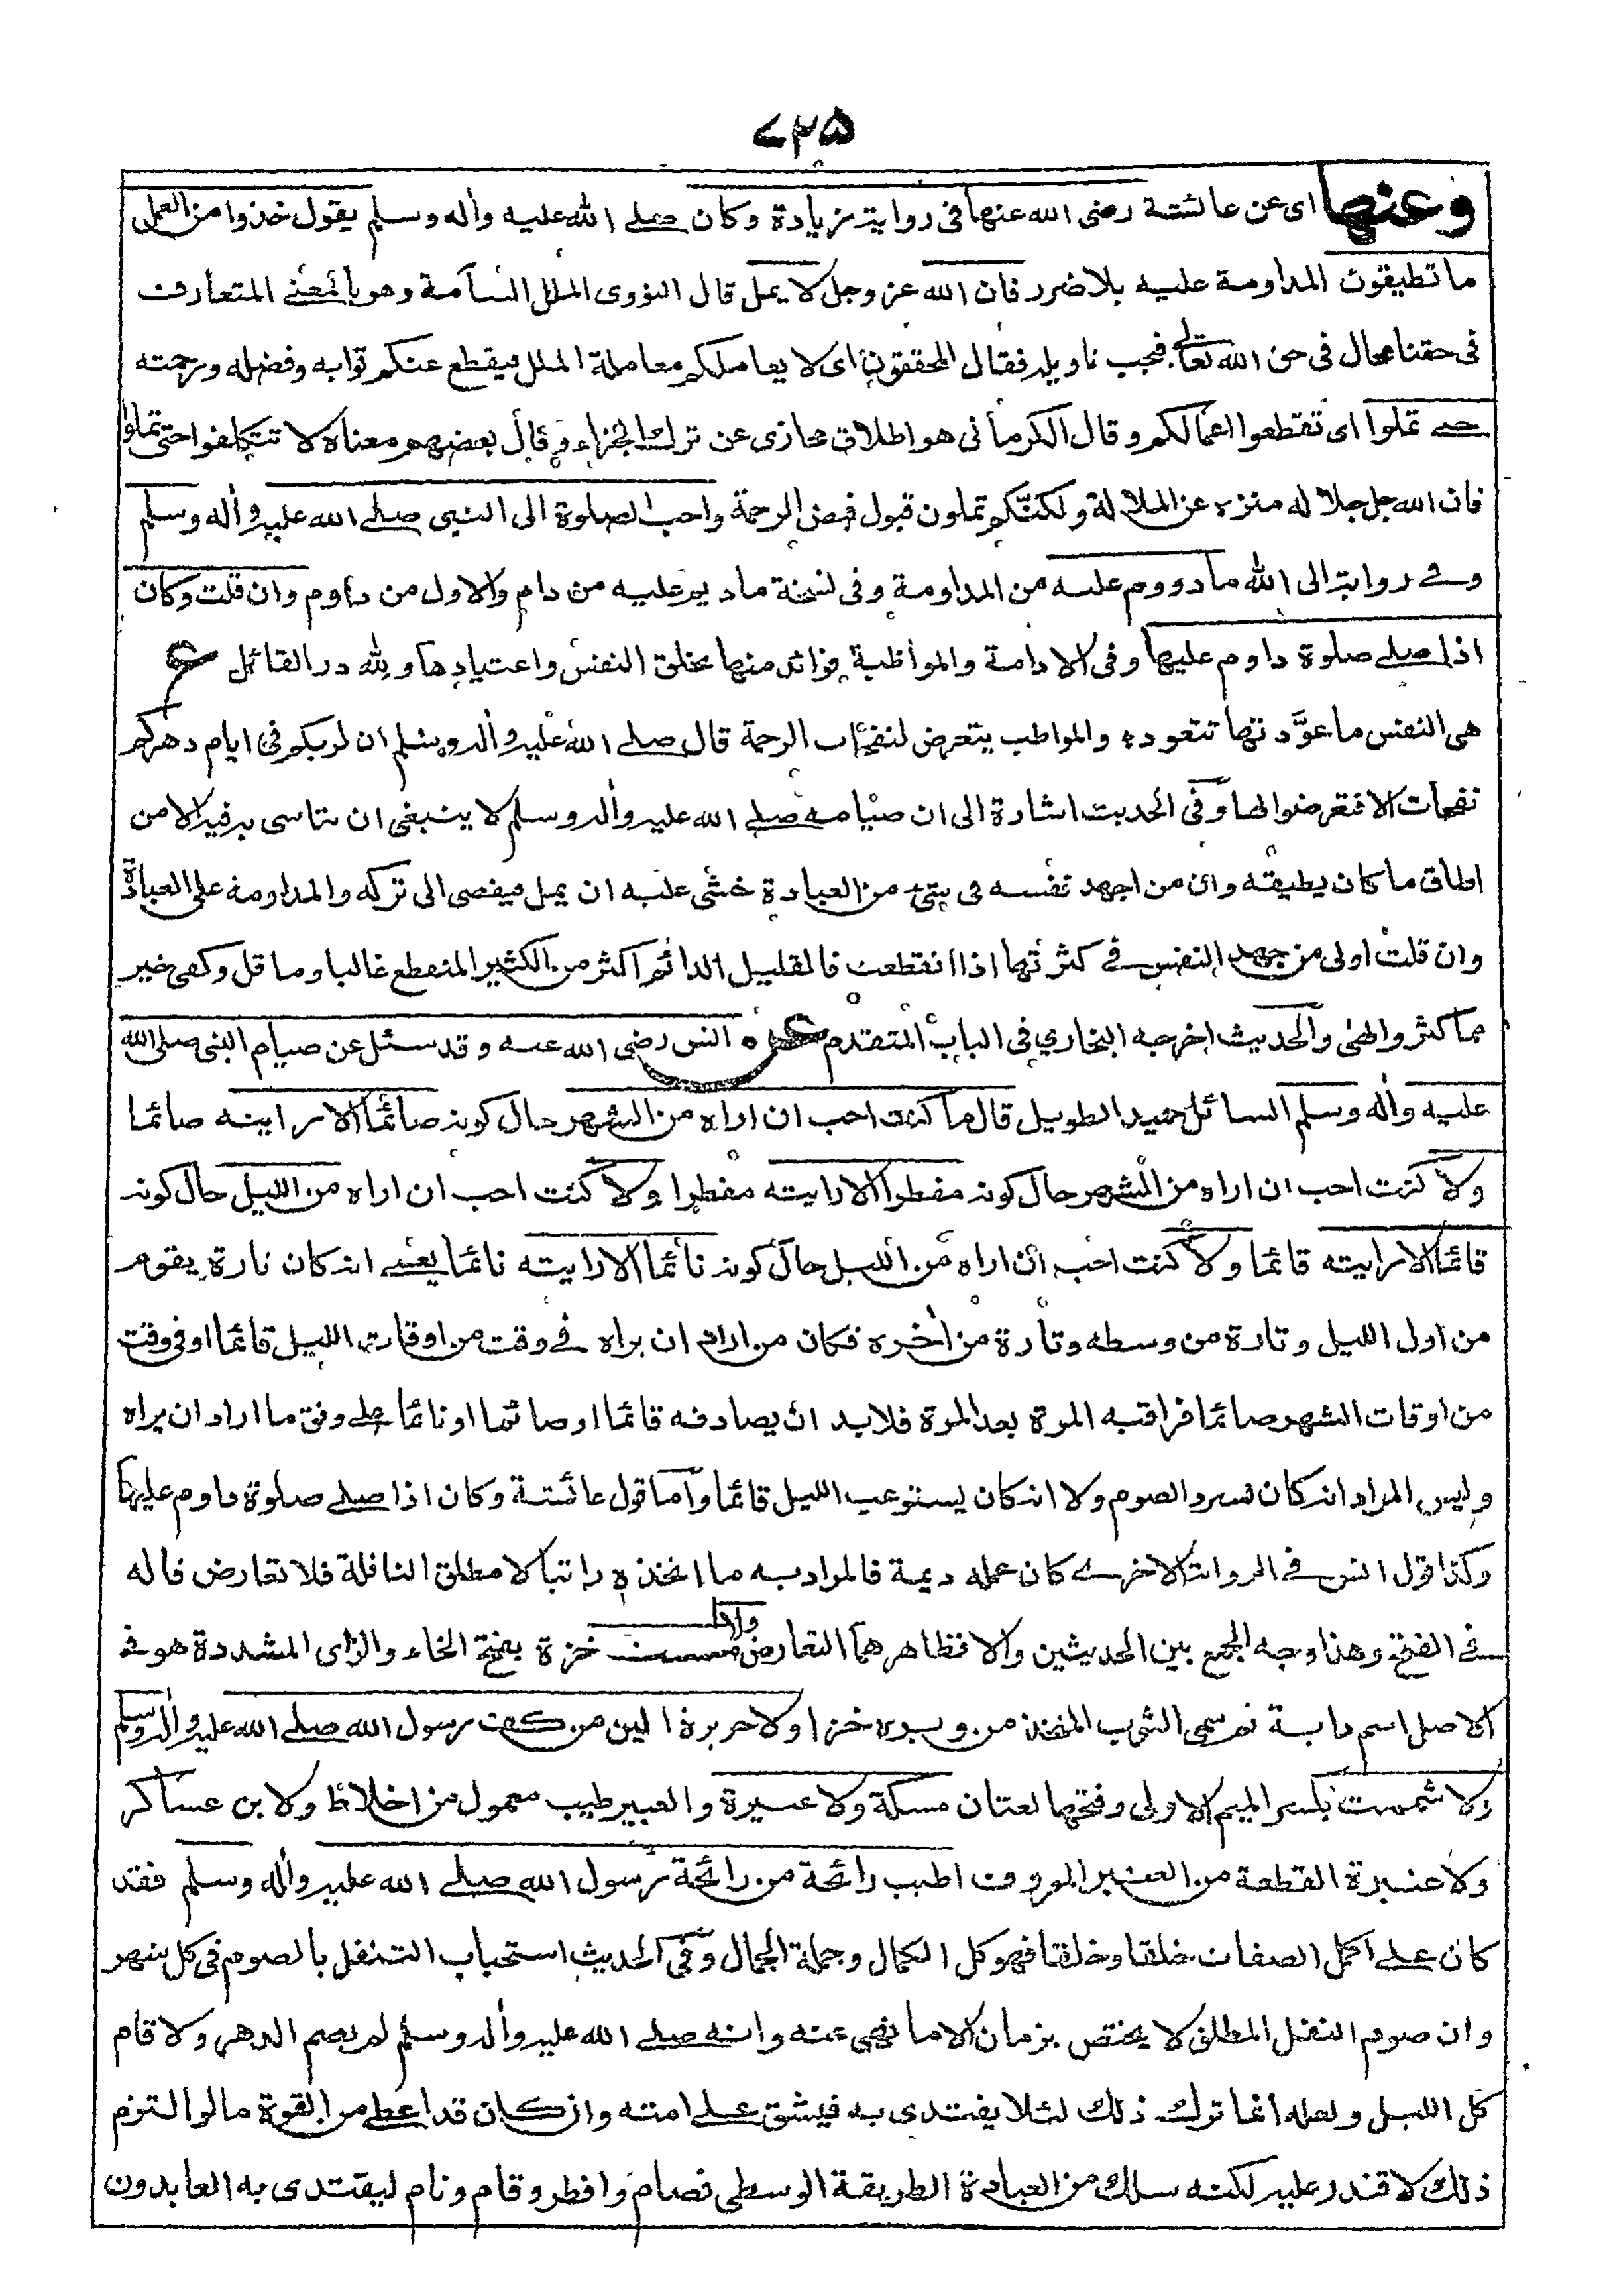 ٧٢٥
وعنها اى عن عائشة رضى الله عنها فى رواية زيادة وكان صلے الله عليه واٰله وسلم يقول خذوا من العمل
ما تطيقون المداومة عليه بلا ضرر فان الله عز وجل لا يمل قال النووى الملل السآمة وهو بالمعنے المتعارف
فى حقنا محال فى حق الله تعالے فيجب تاويله فقال المحققون اى لا يعاملكم معاملة الملل فيقطع عنكم ثوابه وفضله ورحمته
حتے تملوا اى تقطعوا اعمالكم وقال الكرمانى هو اطلاق مجازى عن ترك الجزاء وقال بعضهم معناه لا تتكلفوا حتى تملوا
فان الله جل جلاله منزه عن الملالة ولكنكم تملون قبول فيض الرحمة واحب الصلوة الى النبى صلے الله عليه واٰله وسلم
وفے رواية الى الله ما دووم عليه من المداومة وفى نسخة ما ديم عليه من دام والاول من داوم وان قلت وكان
اذا صلے صلوة داوم عليها وفى الادامة والمواظبة فوائد منها تخلق النفس واعتيادها ولله در القائل ع
هى النفس ما عوَّدتها تتعود ه والمواظب يتعرض لنفحات الرحمة قال صلے الله عليه واٰله وسلم ان لربكم فى ايام دهركم
نفحات الا فتعرضوا لها وفى الحديث اشارة الى ان صيامه صلے الله عليه واٰله وسلم لا ينبغى ان يتاسى به فيه الا من
اطاق ما كان يطيقه وان من اجهد نفسه فى شئ من العبادة خشى عليه ان يمل فيفضى الى تركه والمداومة على العبادة
وان قلت اولى من جهد النفس فے كثرتها اذا انقطعت فالقليل الدائم اكثر من الكثير المنقطع غالبا وما قل وكفى خير
مما كثر والهى والحديث اخرجه البخاري فى الباب المتقدم عن انس رضى الله عنه وقد سئل عن صيام النبى صلى الله
عليه واٰله وسلم السائل حميد الطويل قال ما كنت احب ان اراه من الشهر حال كونه صائما الا رايته صائما
ولا كنت احب ان اراه من الشهر حال كونه مفطرا الا رايته مفطرا ولا كنت احب ان اراه من الليل حال كونه
قائما الا رايته قائما ولا كنت احب ان اراه من الليل حال كونه نائما الا رايته نائما يعنے انه كان تارة يقوم
من اول الليل وتارة من وسطه وتارة من اٰخره فكان من اراد ان يراه فے وقت من اوقات الليل قائما او فى وقت
من اوقات الشهر صائما فراقبه المرة بعد المرة فلا بد ان يصادفه قائما او صائما او نائما علے وفق ما اراد ان يراه
وليس المراد انه كان يسرد الصوم ولا انه كان يستوعب الليل قائما واما قول عائشة وكان اذا صلے صلوة داوم عليها
وكذا قول انس فے الرواية الاخرے كان عمله ديمة فالمراد به ما اتخذه راتبا لا مطلق النافلة فلا تعارض قاله
فے الفتح وهذا وجه الجمع بين الحديثين والا فظاهرهما التعارض ولا مسست خزة بفتح الخاء والزاى المشددة هو فے
الاصل اسم دابة ثم سمى الثوب المتخذ من وبره خزا ولا حريرة الين من كف رسول الله صلے الله عليه واٰله وسلم
ولا شممت بكسر الميم الاولى وفتحها لغتان مسكة ولا عبيرة والعبير طيب معمول من اخلاط ولابن عساكر
ولا عنبرة القطعة من العنبر المعروف اطيب رائحة من رائحة رسول الله صلے الله عليه واٰله وسلم فقد
كان علے اكمل الصفات خلقا وخلقا فهو كل الكمال وجملة الجمال وفى الحديث استحباب التنفل بالصوم فى كل شهر
وان صوم النفل المطلق لا يختص بزمان الا ما نهى عنه وانه صلے الله عليه واٰله وسلم لم يصم الدهر ولا قام
كل الليل ولعله انما ترك ذلك لئلا يقتدى به فيشق علے امته وان كان قد اعطے من القوة ما لو التزم
ذلك لاقتدر عليه لكنه سلك من العبادة الطريقة الوسطى فصام وافطر وقام ونام ليقتدى به العابدون